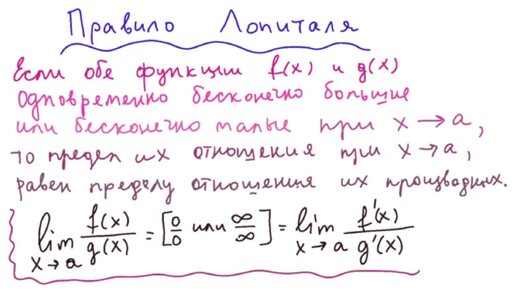 Правило Лопиталя
Если обе функции f(x) и g(x)
одновременно бесконечно большие
или бесконечно малые при x → a,
то предел их отношения при x → a,
равен пределу отношения их производных.
lim x→a f(x)/g(x) = [0/0 или ∞/∞] = lim x→a f'(x)/g'(x)